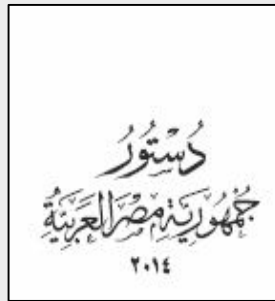 دُسْتُورُ
جُمْهُورِيَّةِ مِصْرَ الْعَرَبِيَّةِ
٢٠١٤